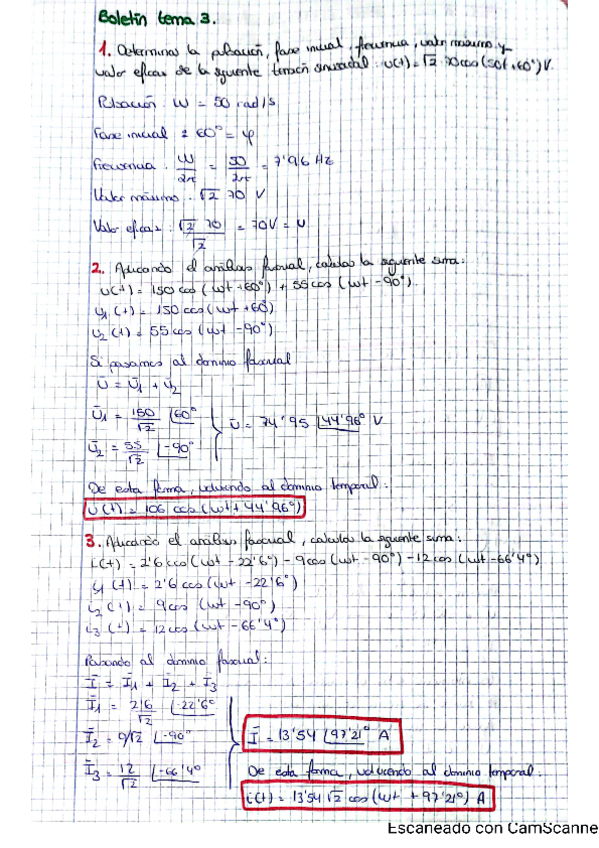 Boletín tema 3.
1. Determinar la pulsación, fase inicial, frecuencia, valor máximo y
valor eficaz de la siguiente tensión sinusoidal: u(t) = √2 · 70 cos(50t + 60°) V.
Pulsación W = 50 rad/s
Fase inicial = 60° = φ
Frecuencia: W/2π = 50/2π = 7'96 Hz
Valor máximo: √2 70 V
Valor eficaz: √2 70/√2 = 70V = U
2. Aplicando el análisis fasorial, calcular la siguiente suma:
u(t) = 150 cos(wt + 60°) + 55 cos(wt - 90°).
u₁(t) = 150 cos(wt + 60°)
u₂(t) = 55 cos(wt - 90°)
Si pasamos al dominio fasorial
Ū = Ū₁ + Ū₂
Ū₁ = 150/√2 ∠60°
Ū = 74'95 ∠44'96° V
Ū₂ = 55/√2 ∠-90°
De esta forma, volviendo al dominio temporal:
u(t) = 106 cos(wt + 44'96°)
3. Aplicando el análisis fasorial, calcular la siguiente suma:
i(t) = 2'6 cos(wt - 22'6°) - 9 cos(wt - 90°) - 12 cos(wt - 66'4°)
i₁(t) = 2'6 cos(wt - 22'6°)
i₂(t) = 9 cos(wt - 90°)
i₃(t) = 12 cos(wt - 66'4°)
Pasando al dominio fasorial:
Ī = Ī₁ + Ī₂ + Ī₃
Ī₁ = 2'6/√2 ∠-22'6°
Ī₂ = 9/√2 ∠-90°
Ī = 13'54 ∠97'21° A
Ī₃ = 12/√2 ∠-66'4°
De esta forma, volviendo al dominio temporal:
i(t) = 13'54 √2 cos(wt + 97'21°) A
Escaneado con CamScanne